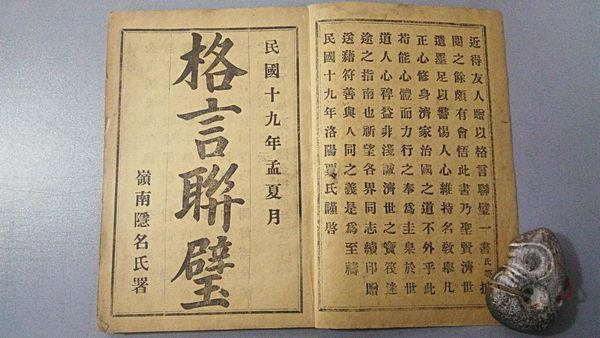 近得友人贈以格言聯璧一書氏等披
閱之餘頗有會悟此書乃聖賢濟世
遺墨足以警惕人心維持名教舉凡
正心修身濟家治國之道不外乎此
苟能心體而力行之奉爲圭臬於世
道人心裨益非淺誠濟世之寶筏迷
途之指南也祈望各界同志續印贈
送藉符善與人同之義是爲至禱
民國十九年洛陽賈氏謹啓
民國十九年孟夏月
格言聯璧
嶺南隱名氏署